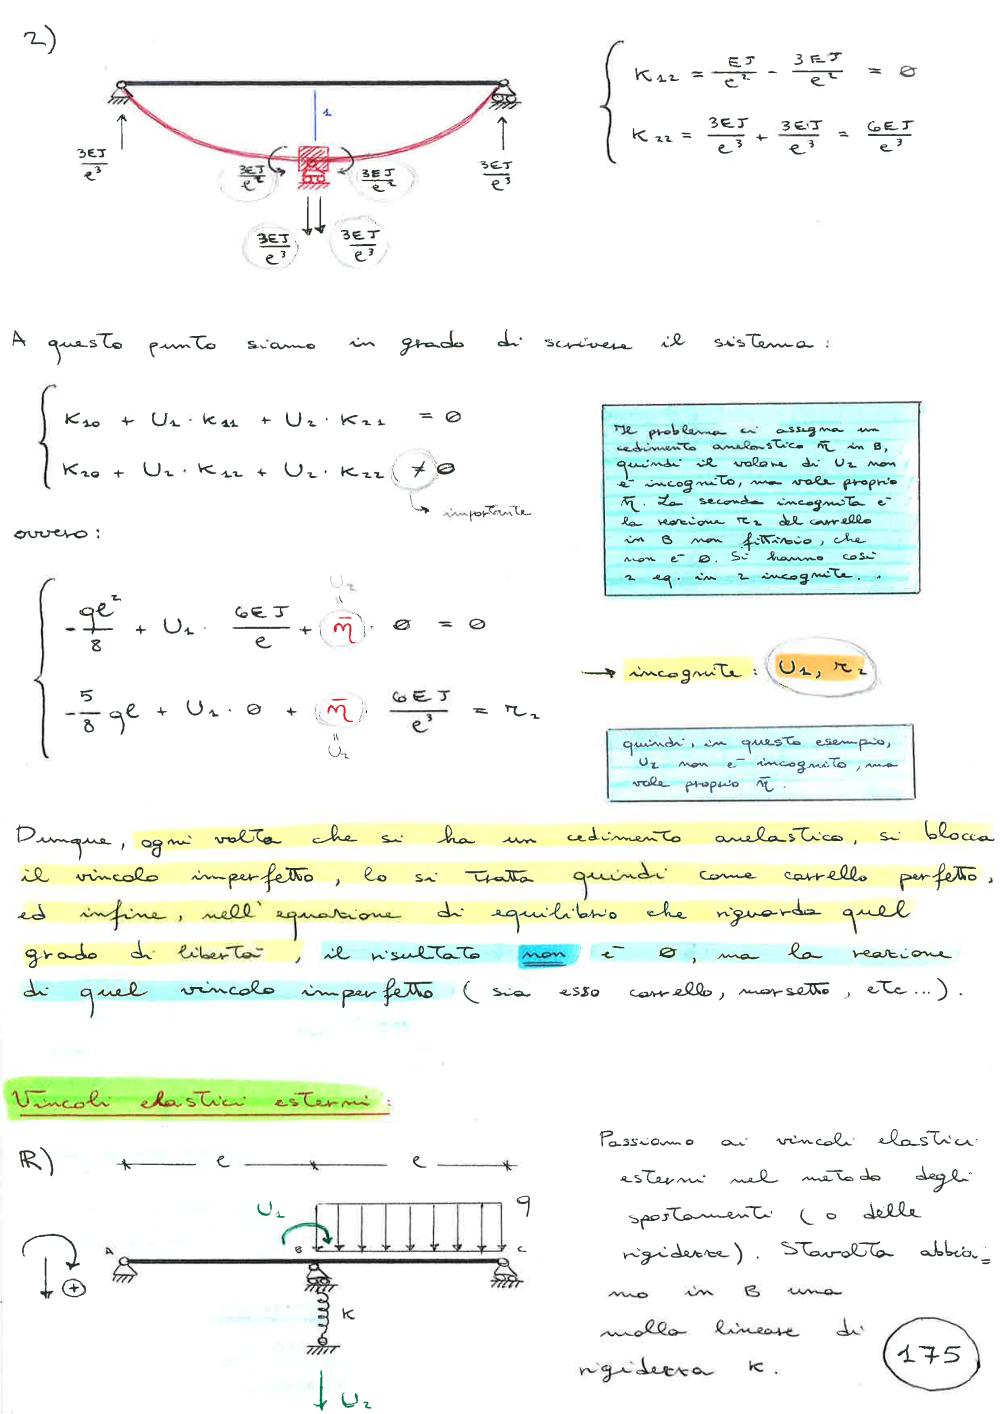 2)
K₁₂ = EJ/ℓ² - 3EJ/ℓ² = 0
K₂₂ = 3EJ/ℓ³ + 3EJ/ℓ³ = 6EJ/ℓ³
1
3EJ/ℓ³ 3EJ/ℓ² 3EJ/ℓ² 3EJ/ℓ³
3EJ/ℓ³ 3EJ/ℓ³
A questo punto siamo in grado di scrivere il sistema:
K₁₀ + U₁ · K₁₁ + U₂ · K₂₁ = 0
K₂₀ + U₂ · K₁₂ + U₂ · K₂₂ ≠ 0
importante
Il problema ci assegna un
cedimento anelastico η̄ in B,
quindi il valore di U₂ non
è incognito, ma vale proprio
η̄. La seconda incognita è
la reazione r₂ del carrello
in B non fittizio, che
non è 0. Si hanno così
2 eq. in 2 incognite. .
ovvero:
U₂
=
-qℓ²/8 + U₁ · 6EJ/ℓ + η̄ · 0 = 0
→ incognite: U₁, r₂
-5/8 qℓ + U₁ · 0 + η̄ · 6EJ/ℓ³ = r₂
=
U₂
quindi, in questo esempio,
U₂ non è incognito, ma
vale proprio η̄.
Dunque, ogni volta che si ha un cedimento anelastico, si blocca
il vincolo imperfetto, lo si tratta quindi come carrello perfetto,
ed infine, nell'equazione di equilibrio che riguarda quel
grado di libertà, il risultato non è 0, ma la reazione
di quel vincolo imperfetto (sia esso carrello, morsetto, etc...).
Vincoli elastici esterni:
R) ℓ ℓ
U₁ q
A B C
+
K
U₂
Passiamo ai vincoli elastici
esterni nel metodo degli
spostamenti (o delle
rigidezze). Stavolta abbia=
mo in B una
molla lineare di
rigidezza K.
175